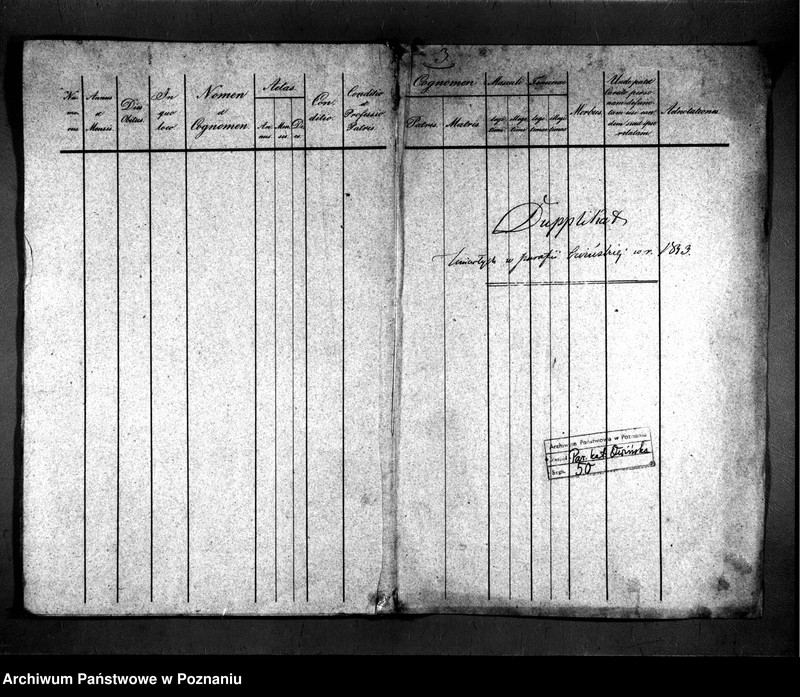 Nu-
me-
rus
Annus
et
Mensis
Dies
Obitus
In
quo
loco
Nomen
et
Cognomen
Aetas
An-
ni
Men-
ses
Di-
es
Con-
ditio
Conditio
et
Professio
Patris
3.
Cognomen
Patris
Matris
Masculi
legi-
timi
illegi-
timi
Feminae
legi-
timae
illegi-
timae
Morbus
Unde patet
Adnotationes
Dupplikat
Umarłych w parafii Owińskiej w r. 1833.
Archiwum Państwowe w Poznaniu
Zespół Par. kat. Owińska
Sygn. 50
Archiwum Państwowe w Poznaniu